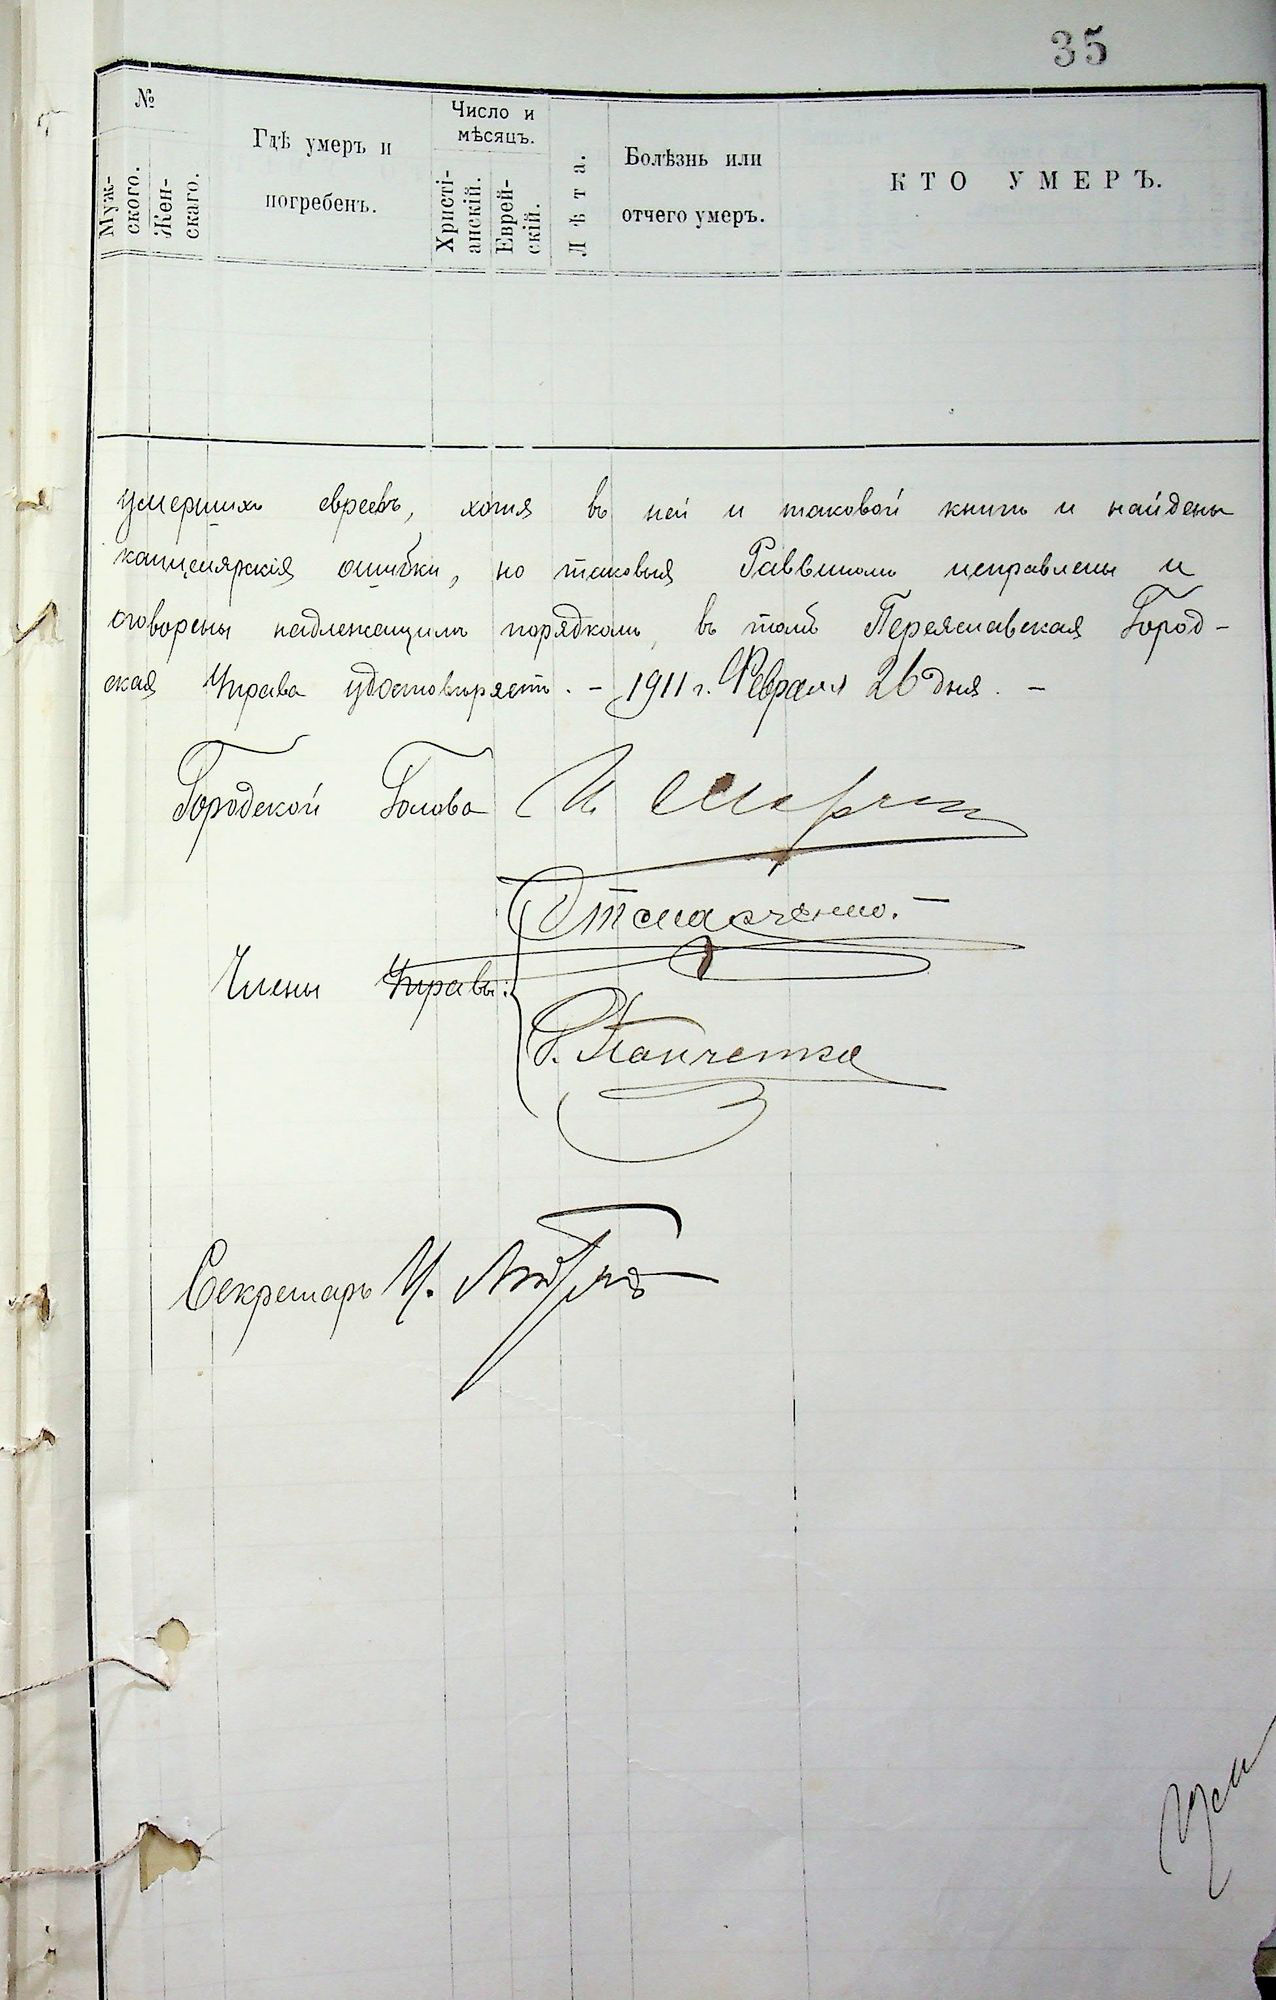 35
№
Муж-
ского.
Жен-
скаго.
Гдѣ умеръ и
погребенъ.
Число и
мѣсяцъ.
Христі-
анскій.
Еврей-
скій.
Лѣта.
Болѣзнь или
отчего умеръ.
КТО УМЕРЪ.
умершихъ евреевъ, хотя въ ней и таковой книгѣ и найдены
канцелярскія ошибки, но таковыя Раввиномъ исправлены и
оговорены надлежащимъ порядкомъ, въ томъ Переяславская Город-
ская Управа удостовѣряетъ. – 1911 г. Февраля 26 дня. –
Городской Голова И.
Члены Управы:
Секретарь И.